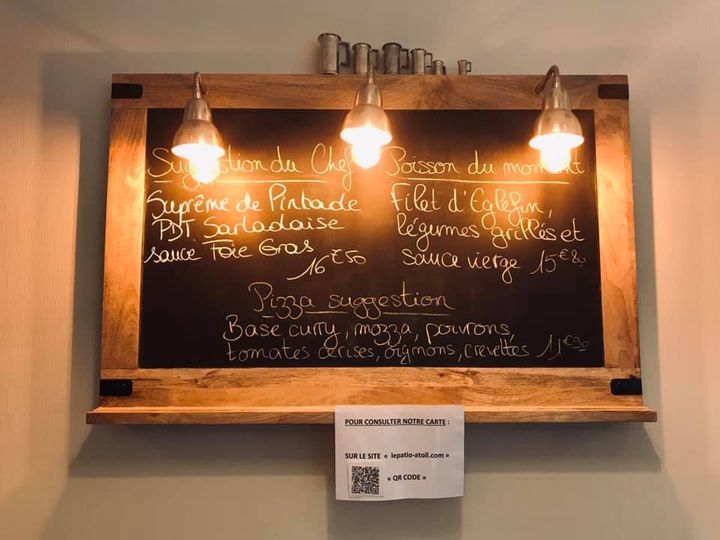 Suggestion du Chef
Suprême de Pintade
PDT Sarladaise
sauce Foie Gras
16€50
Poisson du moment
Filet d'Eglefin,
légumes grillés et
sauce vierge 15€80
Pizza suggestion
Base curry, mozza, poivrons,
tomates cerises, oignons, crevettes 11€90
POUR CONSULTER NOTRE CARTE :
SUR LE SITE « lepatio-atoll.com »
« QR CODE »